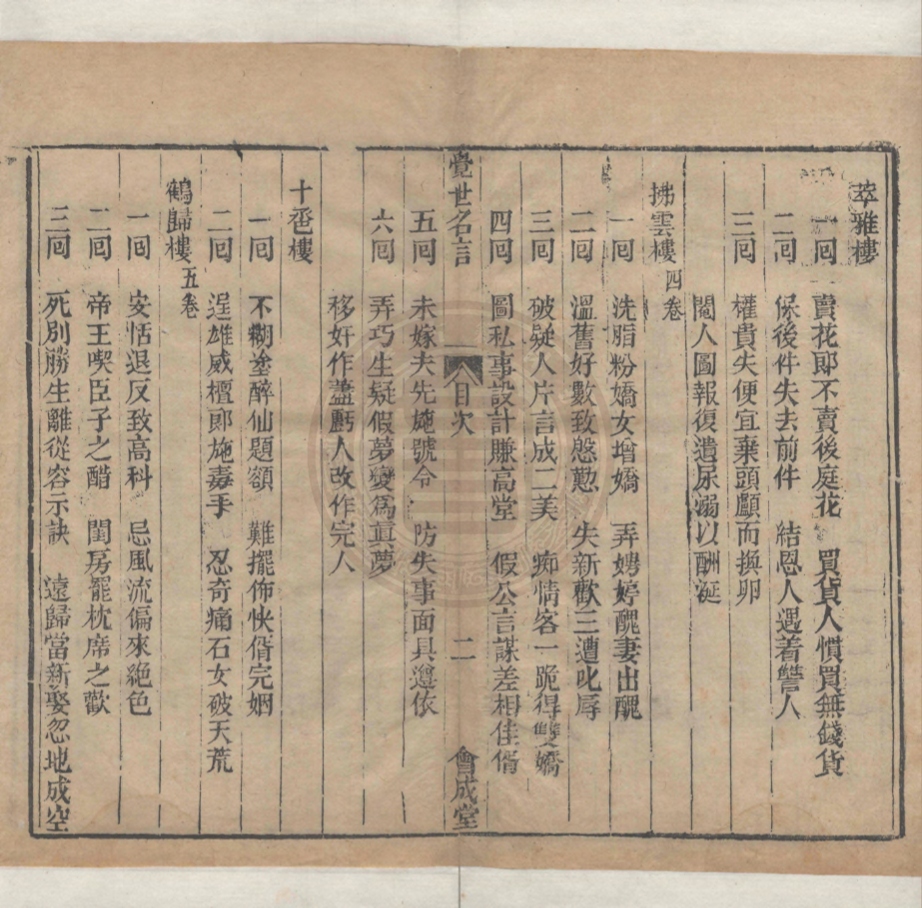 萃雅樓
一囘 賣花郎不賣後庭花 買貨人慣買無錢貨
二囘 保後件失去前件 結恩人遇着讐人
三囘 權貴失便宜棄頭顱而換卵
閹人圖報復遺尿溺以酬涎
拂雲樓 四卷
一囘 洗脂粉嬌女增嬌 弄娉婷醜妻出醜
二囘 溫舊好數致慇懃 失新歡三遭叱辱
三囘 破疑人片言成二美 痴情客一跪得雙嬌
四囘 圖私事設計賺高堂 假公言謀差相佳婿
覺世名言 目次 二 會成堂
五囘 未嫁夫先施號令 防失事面具遵依
六囘 弄巧生疑假夢變爲眞夢
移奸作盡虧人改作完人
十巹樓
一囘 不糊塗醉仙題額 難擺佈快婿完姻
二囘 逞雄威檀郞施毒手 忍奇痛石女破天荒
鶴歸樓 五卷
一囘 安恬退反致高科 忌風流偏來絕色
二囘 帝王喫臣子之醋 閨房罷枕席之歡
三囘 死別勝生離從容示訣 遠歸當新娶忽地成空